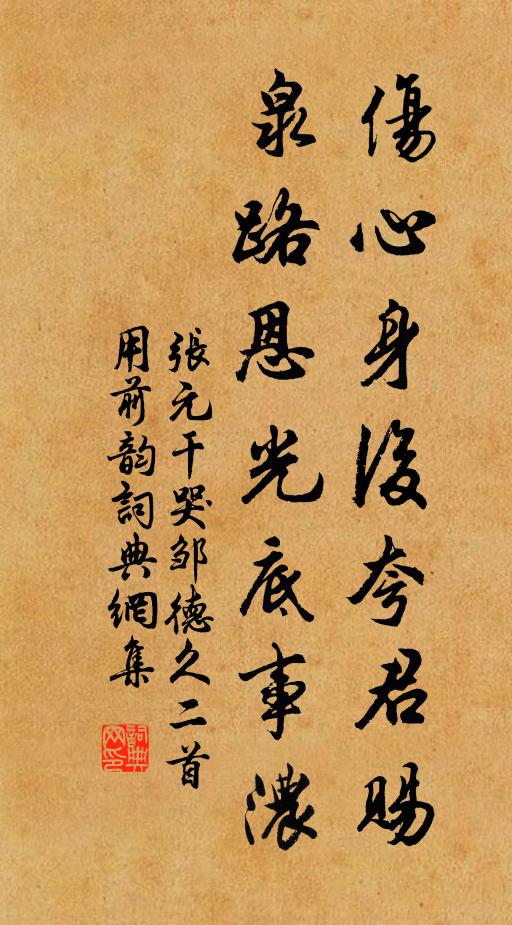 傷心身後夸君賜
泉路恩光底事濃
張元干哭邹德久二首
用前韵詞典網集
詞典網印